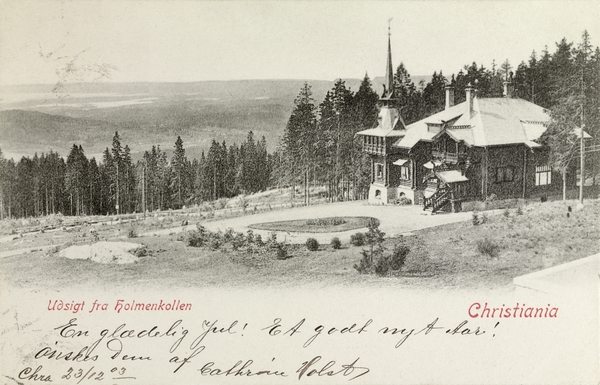 Udsigt fra Holmenkollen
Christiania
En glædelig Jul! Et godt nyt Aar!
ønskes dem af Cathrine Holst
Chra 23/12 03